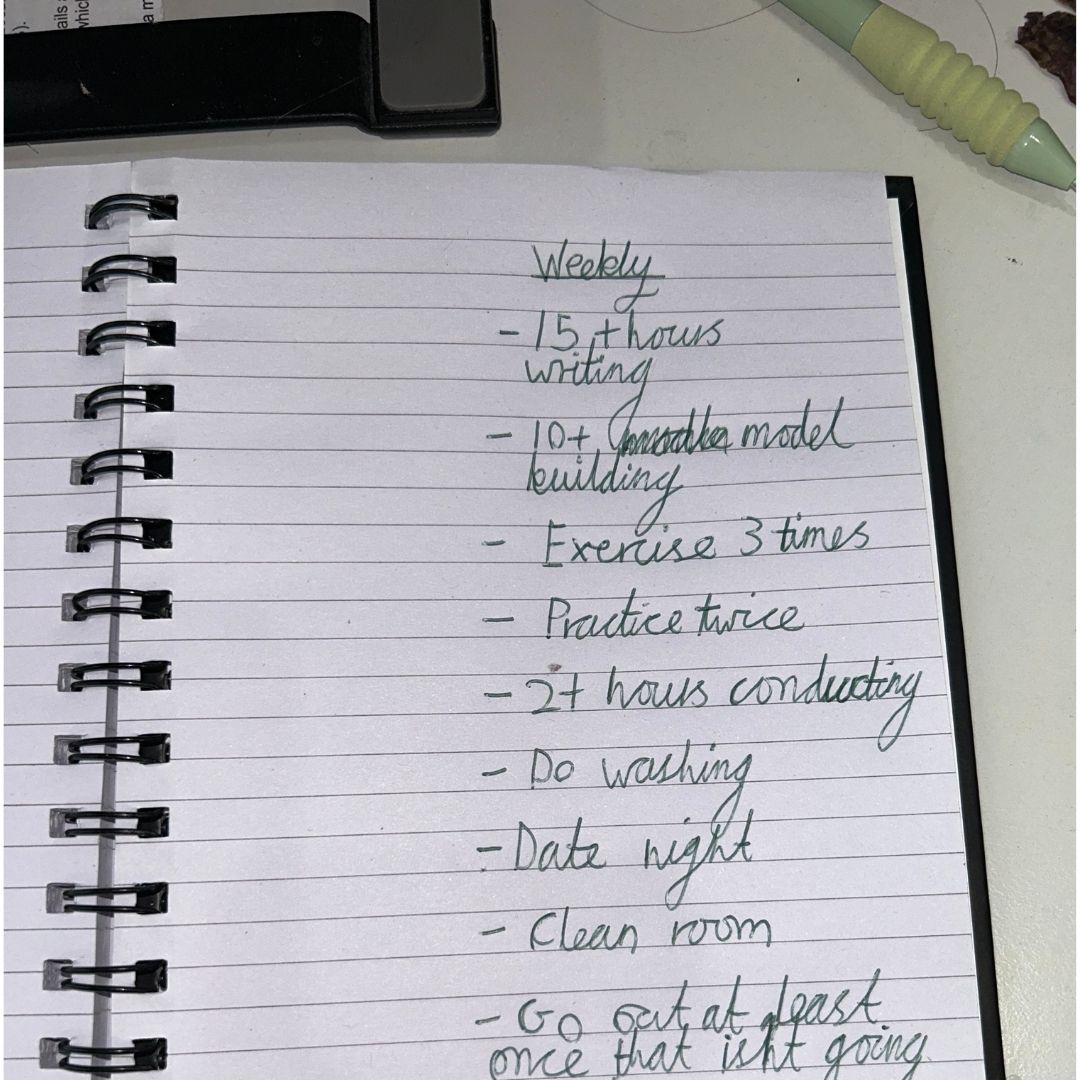 ails
which
a m
Weekly
- 15 + hours
writing
- 10+ model
building
- Exercise 3 times
- Practice twice
- 2+ hours conducting
- Do washing
- Date night
- Clean room
- Go out at least
once that isn't going